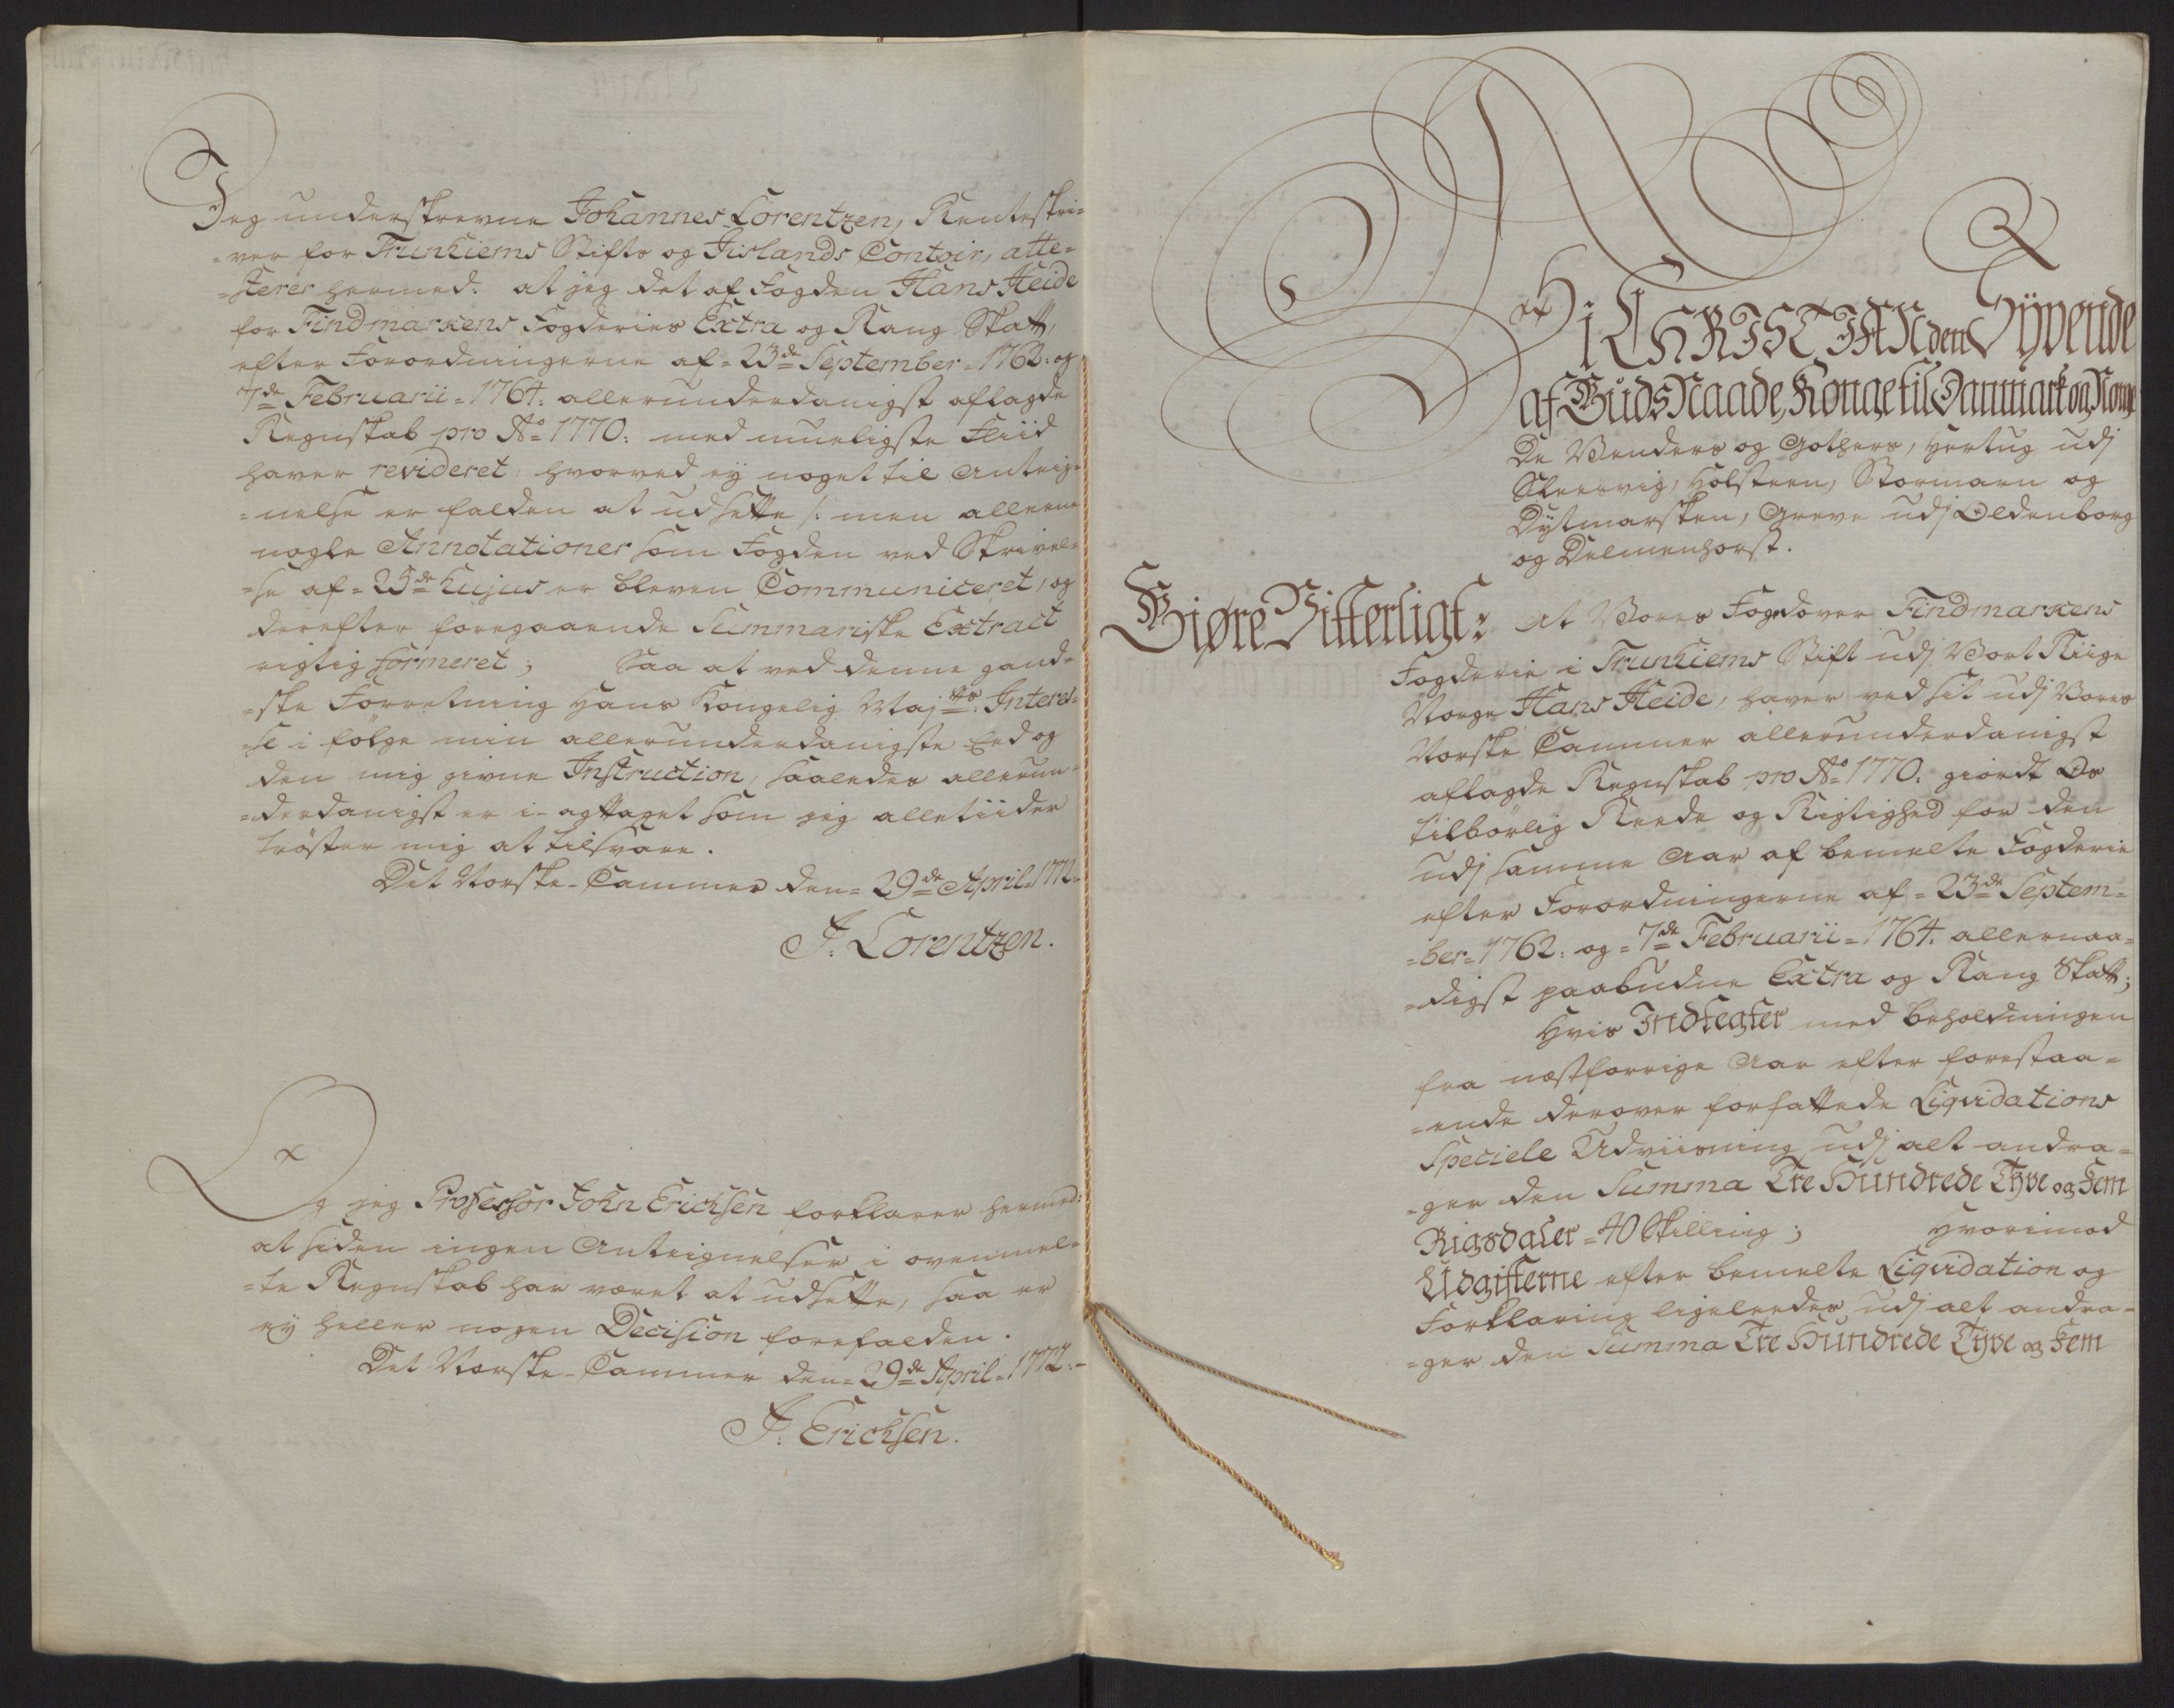 Jeg underskrevne Johannes Lorentzen, Renteskri-
-ver for Trunhiems Stifts og Iislands Contoir, atte-
-sterer hermed: at jeg det af Fogden Hans Heide
for Findmarkens Fogderies Extra og Rang Skatt,
efter Forordningerne af 23de September 1762: og
7de Februarii 1764: allerunderdanigst aflagde
Regnskab pro Ao 1770: med mueligste Fliid
haver revideret, hvorved ey noget til Anteig-
-nelse er falden at udsette /: men alleene
nogle Annotationer som Fogden ved Skrivel-
-se af 25de hujus er bleven Communiceret, og
derefter foregaaende Summariske Extract
rigtig formeret; Saa at ved denne gand-
-ske Forretning Hans Kongelig Majts: Interes-
-se i følge min allerunderdanigste Eed og
den mig givne Instruction, saaledes allerun-
-derdanigst er i-agttaget som jeg alletiider
trøster mig at tilsvare.
Det Norske-Cammer den 29de April 1772.
J. Lorentzen.
Og jeg Professor John Erichsen forklarer hermed:
at siden ingen Anteignelser i ovenmel-
-te Regnskab har været at udsette, saa er
ey heller nogen Decision forefalden.
Det Norske-Cammer den 29de April 1772:-
J. Erichsen.
Wi CHRISTIAN den Syvende
af Guds Naade, Konge til Danmark og Norge
De Wenders og Gothers, Hertug udj
Slesvig, Holsteen, Stormarn og
Dytmarsken, Greve udj Oldenborg
og Delmenhorst.
Giøre Vitterligt: At Vores Foged over Findmarkens
Fogderie i Trunhiems Stift udj Vort Riige
Norge Hans Heide, haver ved sit udj Vores
Norske Cammer allerunderdanigst
aflagde Regnskab pro Ao 1770: giordt Os
tilbørlig Reede og Rigtighed for den
udj samme Aar af bemelte Fogderie
efter Forordningerne af 23de Septem-
-ber 1762: og 7de Februarii 1764: allernaa-
-digst paabudne Extra og Rang Skatt;
Hvis Indtegter med Beholdningen
fra nestforrige Aar efter forestaa-
-ende derover forfattede Liqvidations
Speciele Udviisning udj alt andra-
-ger den Summa Tre Hundrede Tyve og Fem
Rigsdaler 40 Skilling; Hvorimod
Udgifterne efter bemelte Liqvidation og
Forklaring ligeleedes udj alt andra-
-ger den Summa Tre Hundrede Tyve og Fem